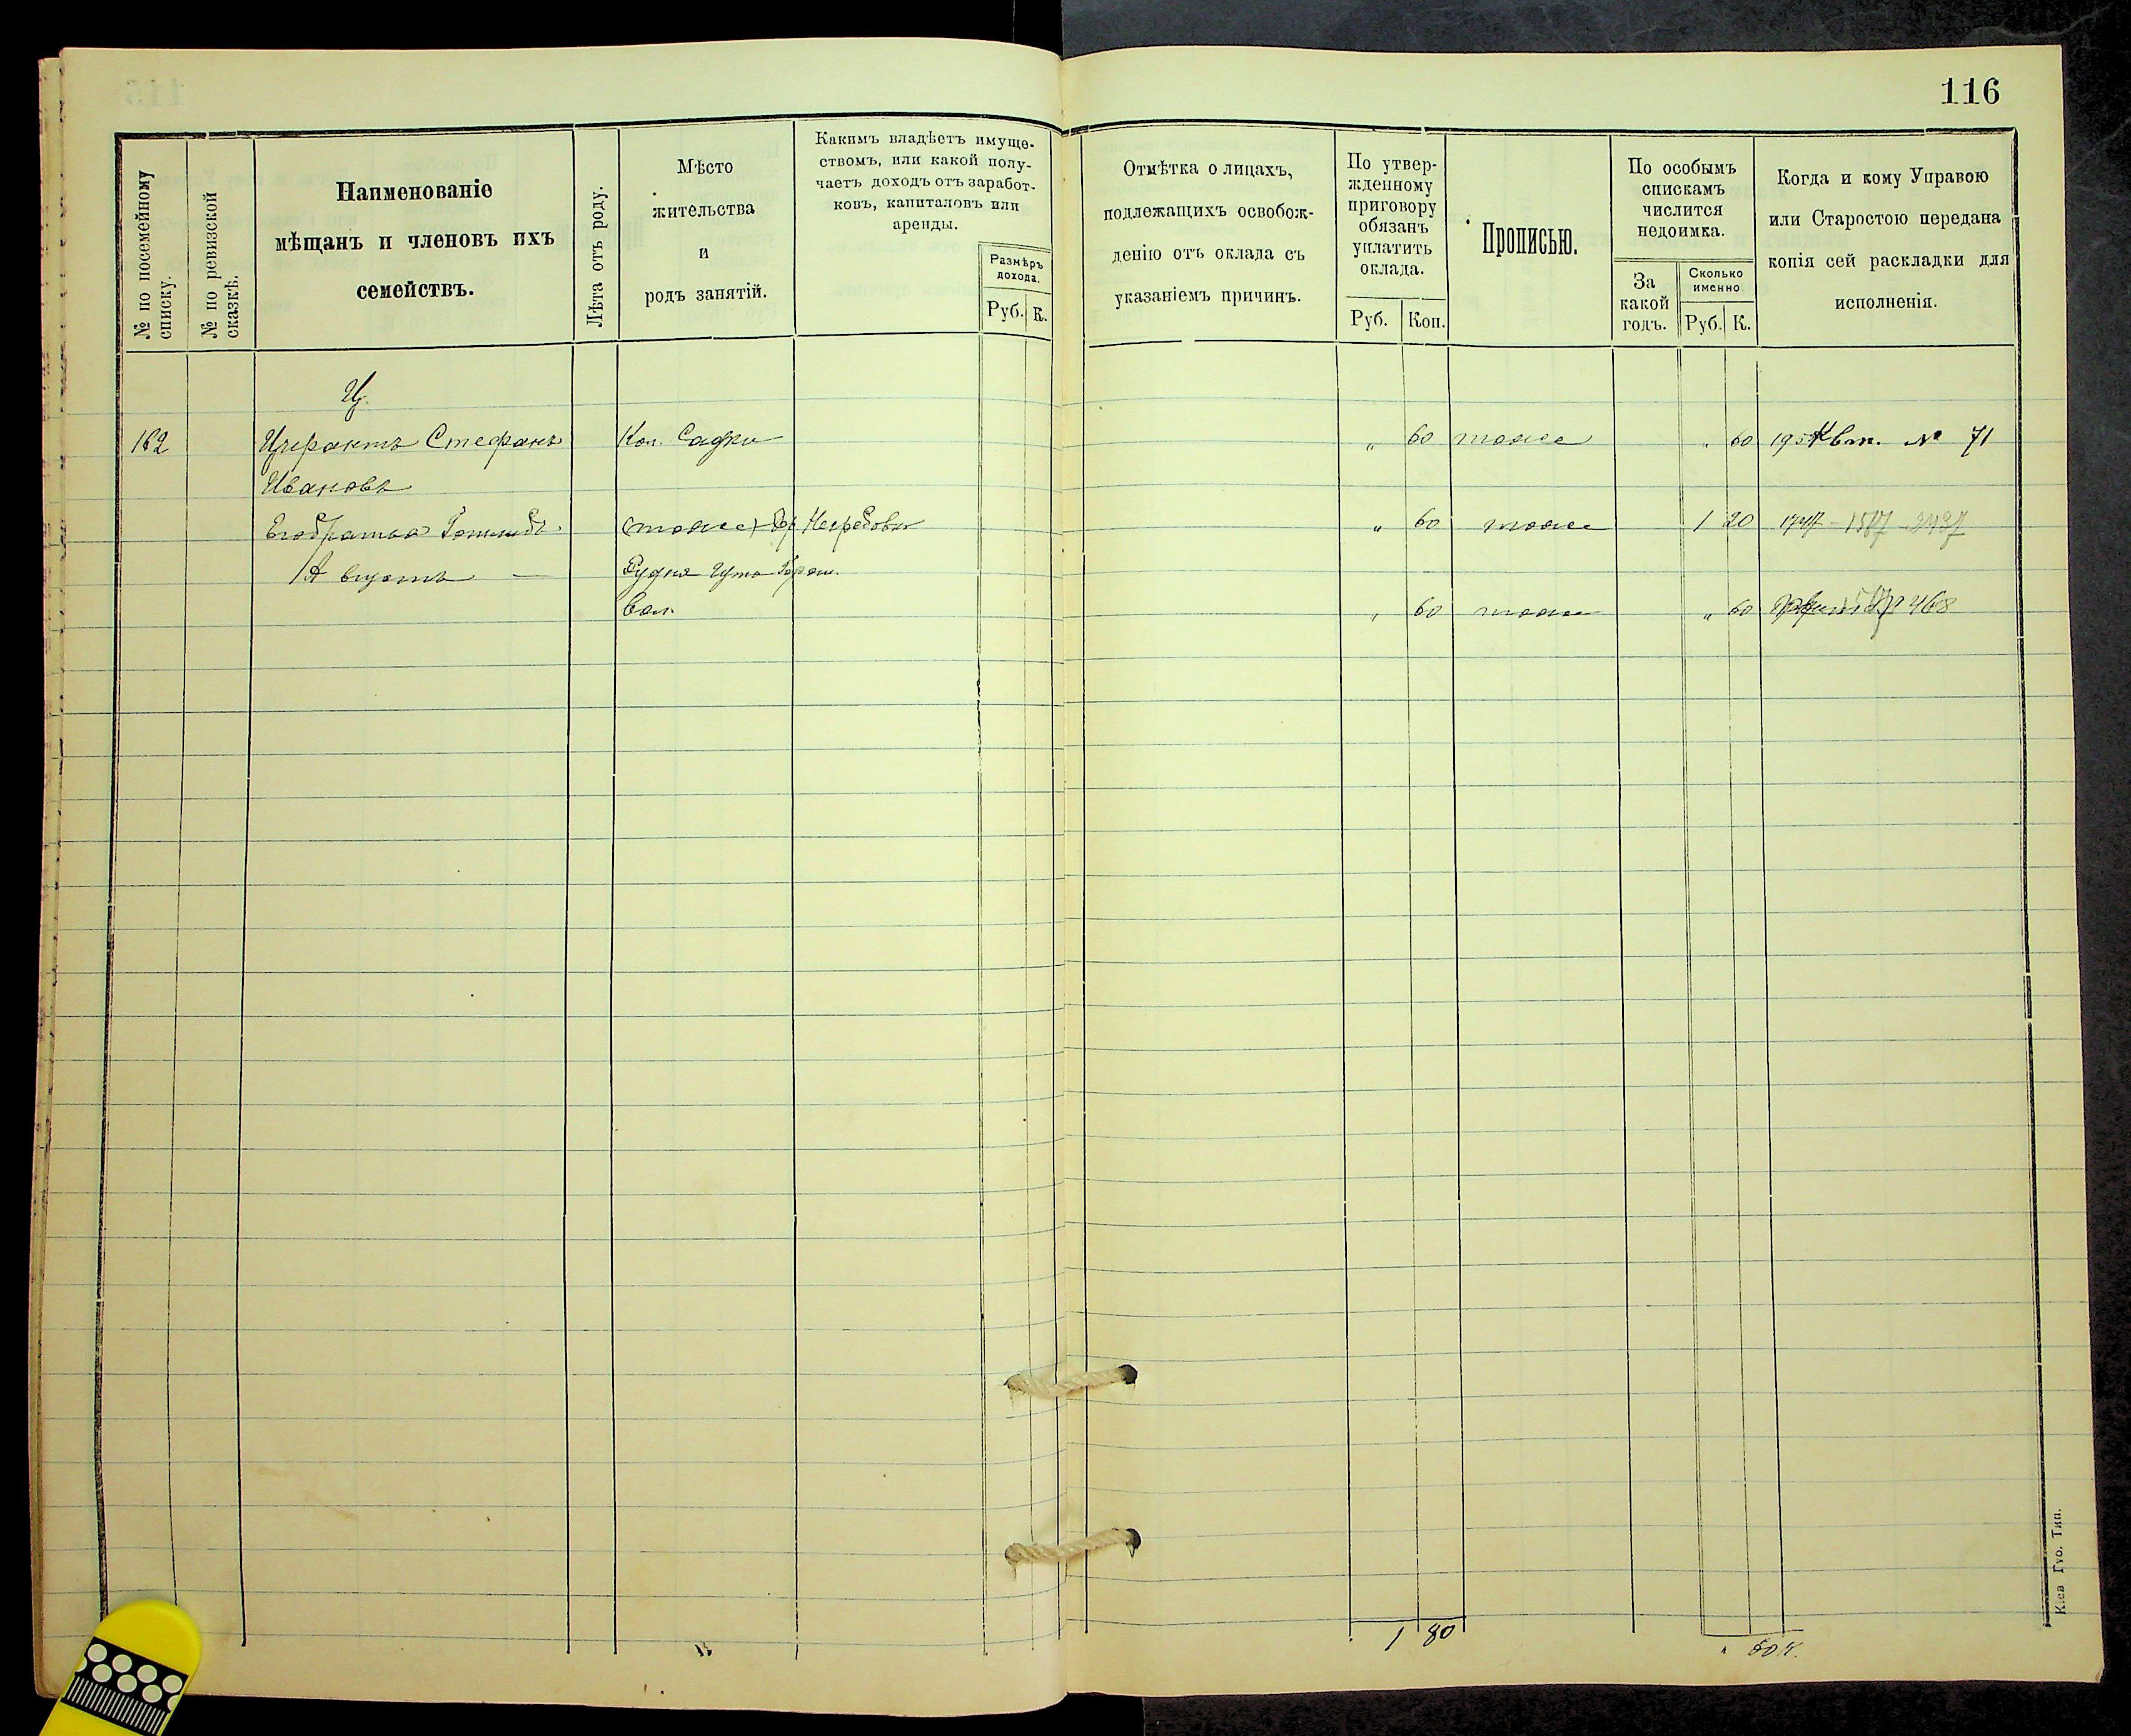 116
№ по посемейному списку.
№ по ревизской сказкѣ.
Наименованіе
мѣщанъ и членовъ ихъ
семействъ.
Лѣта отъ роду.
Мѣсто
жительства
и
родъ занятій.
Какимъ владѣетъ имуще-
ствомъ, или какой полу-
чаетъ доходъ отъ заработ-
ковъ, капиталовъ или
аренды.
Размѣръ
дохода.
Руб. К.
Отмѣтка о лицахъ,
подлежащихъ освобож-
денію отъ оклада съ
указаніемъ причинъ.
По утвер-
жденному
приговору
обязанъ
уплатить
оклада.
Руб. Коп.
Прописью.
По особымъ
спискамъ
числится
недоимка.
За
какой
годъ.
Сколько
именно.
Руб. К.
Когда и кому Управою
или Старостою передана
копія сей раскладки для
исполненія.
Ц.
162 Стефанъ Кол. Садки „ 60 тоже „ 60 Квт. № 71
Ивановъ
Его братья Готлибъ тоже „ 60 тоже 1 20
Августъ — Рудня Гута
Вол. „ 60 тоже „ 60 468
1 80
„ 60 к.
Кіев. Губ. Тип.